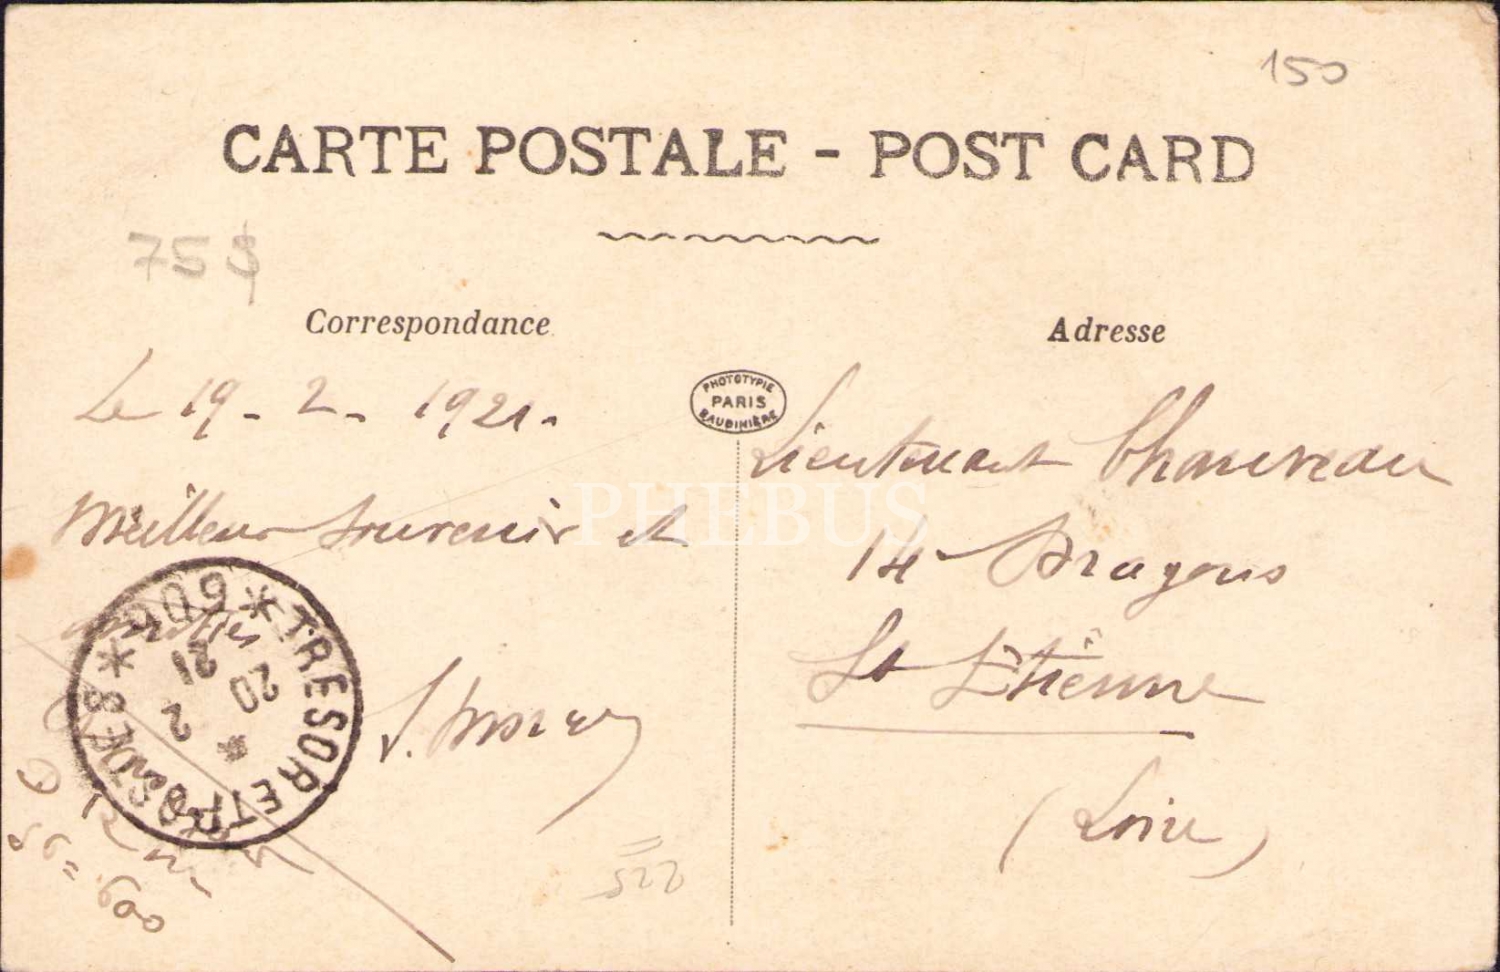 150
CARTE POSTALE - POST CARD
75$
Correspondance
Adresse
Le 19 - 2 - 1921.
Meilleur souvenir et
amitiés
PHOTOTYPIE
PARIS
BAUDINIÈRE
Lieutenant Chauveau
14e Dragons
St Etienne
(Loire)
PHEBUS
* TRESOR ET POSTES * 607
20
2
21
522